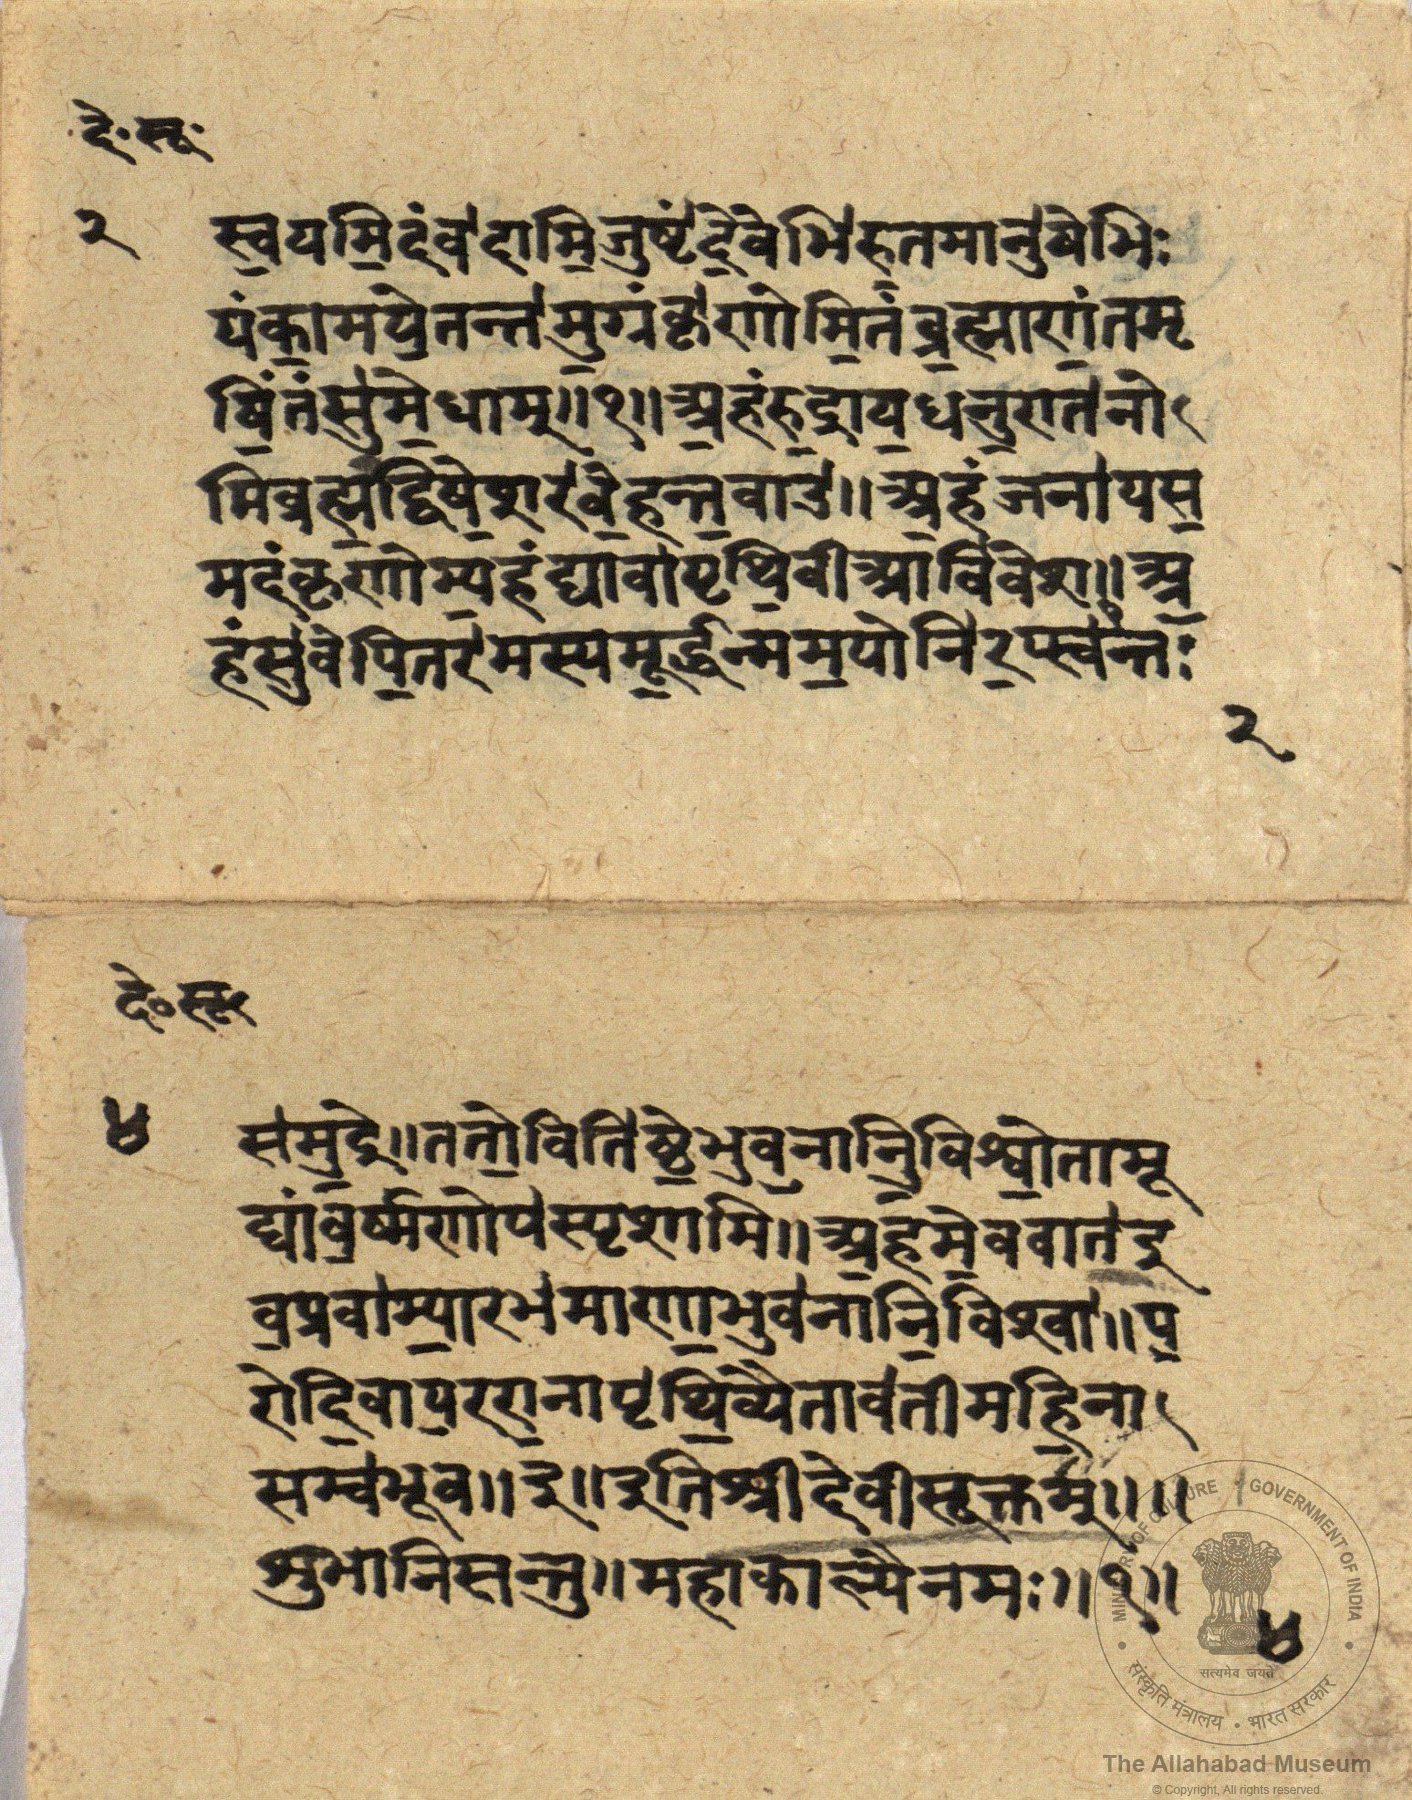 दे॰ सू॰
२
स्व॒यमि॒दंव॑दामि॒जुष्टं॑दे॒वेभि॑रुतमानु॑षेभिः
यंका॒मये॒तन्त॑मु॒ग्रंकृ॑णोमि॒तंब्र॒ह्माणं॒तमृ
षिं॒तंसु॑मे॒धाम्॥१॥अ॒हंरु॒द्राय॒धनु॒रात॑नो
मिब्रह्म॒द्विषे॒शर॑वे॒हन्त॒वाउ॑॥अ॒हंजना॑यस॒
मदं॑कृणोम्य॒हंद्यावा॑पृथि॒वीआवि॑वेश॥अ॒
हंसु॑वेपि॒तर॑मस्यमू॒र्द्धन्मम॒योनि॑र॒प्स्व॑न्तः
२
दे॰ सू॰
४
स॑मु॒द्रे॥ततो॒विति॑ष्ठे॒भुव॒नानि॒विश्वो॒तामू
द्यांव॒र्ष्मणोप॑स्पृशामि॥अ॒हमे॒ववात॑इ
व॒प्रवा॑म्या॒रभ॑माणा॒भुव॑नानि॒विश्वा॑॥प॒
रोदि॒वाप॒रए॒नापृ॑थि॒व्यैताव॑तीमहि॒ना
सम्ब॑भूव॥इ॥इतिश्रीदेवीसूक्तम्॥॥
शुभानिसन्तु॥महाकाल्यैनमः॥१॥
४
MINISTRY OF CULTURE · GOVERNMENT OF INDIA
सत्यमेव जयते
संस्कृति मंत्रालय · भारत सरकार
The Allahabad Museum
© Copyright, All rights reserved.